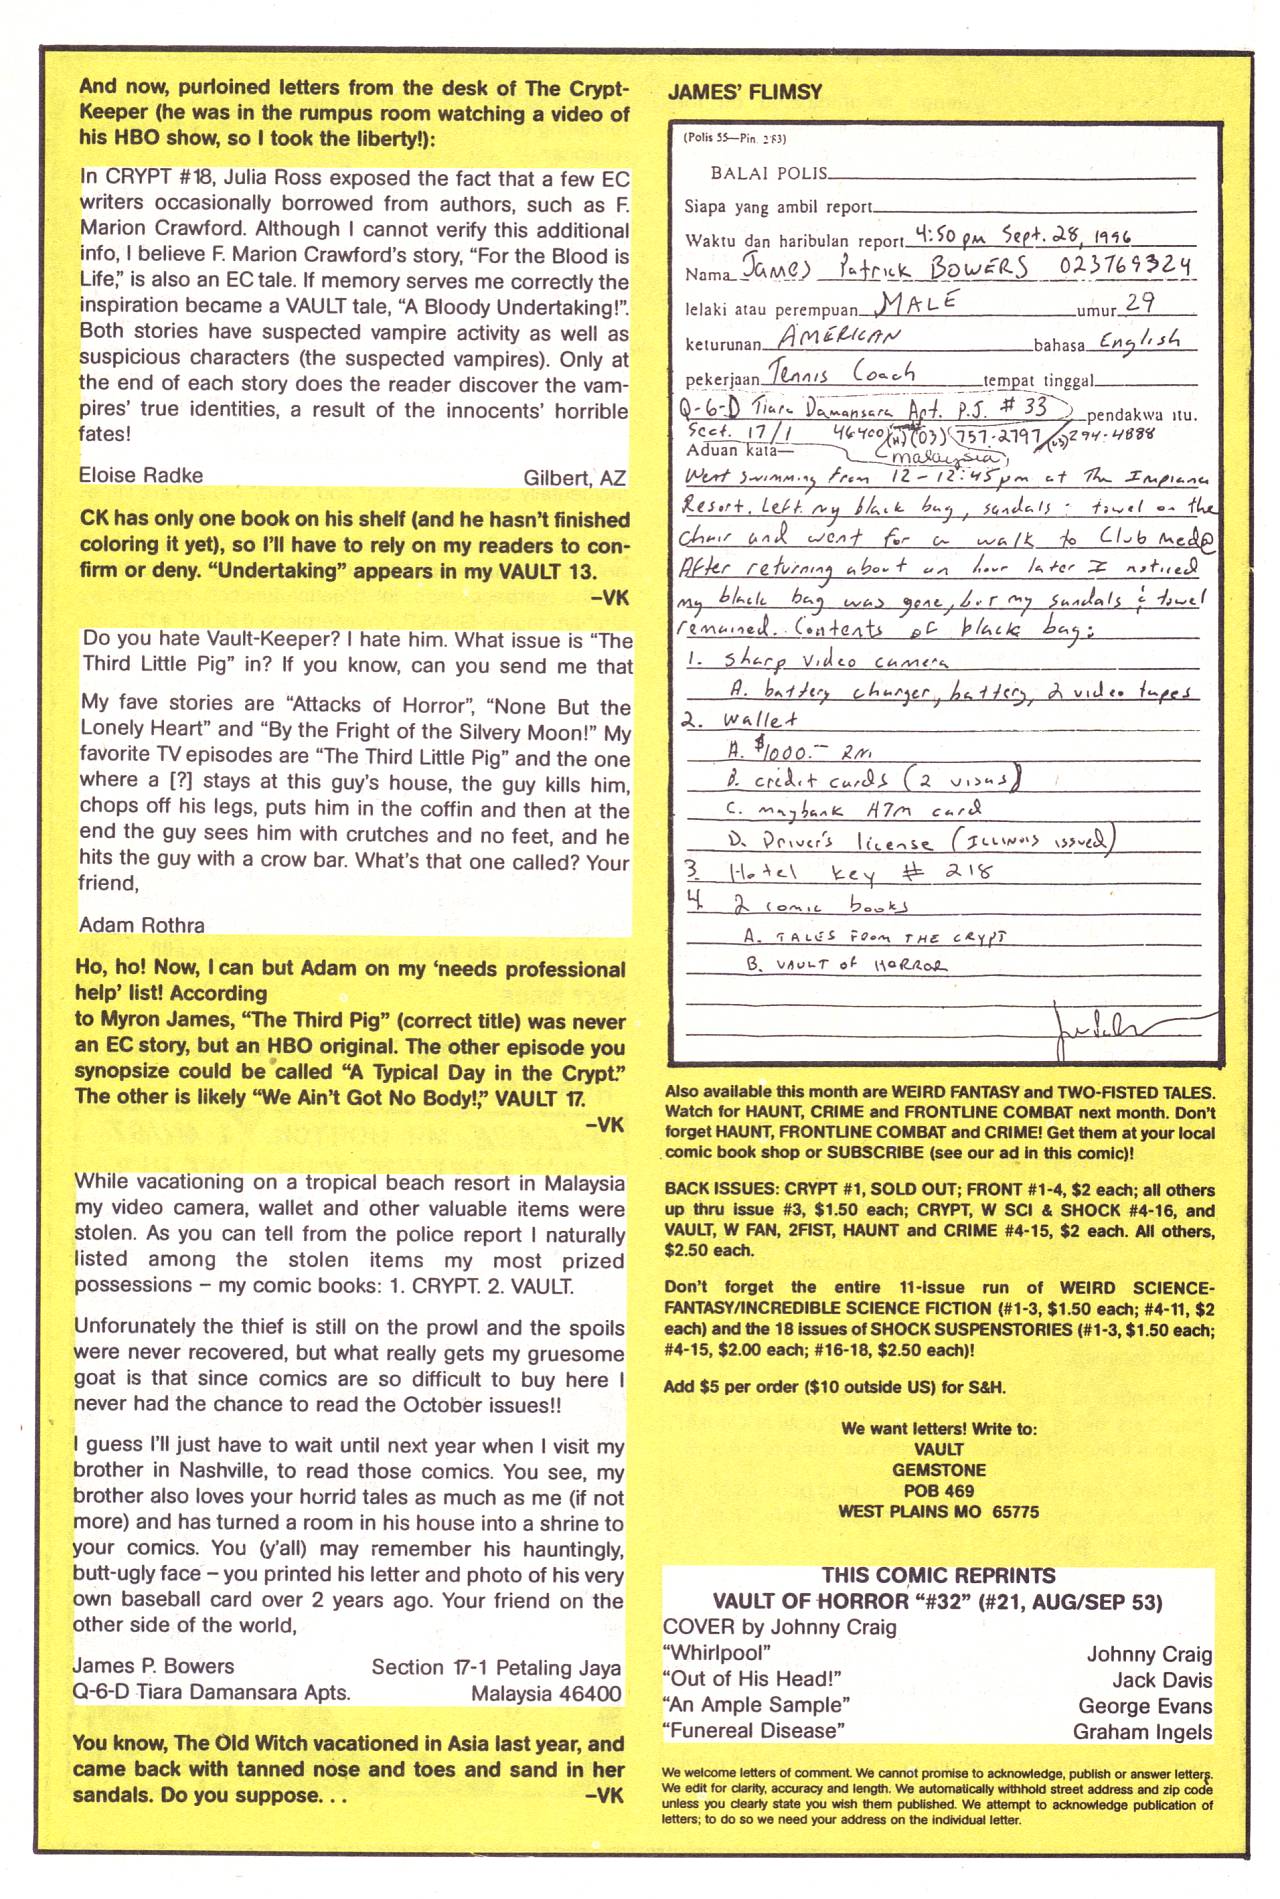 And now, purloined letters from the desk of The Crypt-
Keeper (he was in the rumpus room watching a video of
his HBO show, so I took the liberty!):
In CRYPT #18, Julia Ross exposed the fact that a few EC
writers occasionally borrowed from authors, such as F.
Marion Crawford. Although I cannot verify this additional
info, I believe F. Marion Crawford's story, "For the Blood is
Life," is also an EC tale. If memory serves me correctly the
inspiration became a VAULT tale, "A Bloody Undertaking!".
Both stories have suspected vampire activity as well as
suspicious characters (the suspected vampires). Only at
the end of each story does the reader discover the vam-
pires' true identities, a result of the innocents' horrible
fates!
Eloise Radke Gilbert, AZ
CK has only one book on his shelf (and he hasn't finished
coloring it yet), so I'll have to rely on my readers to con-
firm or deny. "Undertaking" appears in my VAULT 13.
–VK
Do you hate Vault-Keeper? I hate him. What issue is "The
Third Little Pig" in? If you know, can you send me that
My fave stories are "Attacks of Horror", "None But the
Lonely Heart" and "By the Fright of the Silvery Moon!" My
favorite TV episodes are "The Third Little Pig" and the one
where a [?] stays at this guy's house, the guy kills him,
chops off his legs, puts him in the coffin and then at the
end the guy sees him with crutches and no feet, and he
hits the guy with a crow bar. What's that one called? Your
friend,
Adam Rothra
Ho, ho! Now, I can but Adam on my 'needs professional
help' list! According
to Myron James, "The Third Pig" (correct title) was never
an EC story, but an HBO original. The other episode you
synopsize could be called "A Typical Day in the Crypt."
The other is likely "We Ain't Got No Body!," VAULT 17.
–VK
While vacationing on a tropical beach resort in Malaysia
my video camera, wallet and other valuable items were
stolen. As you can tell from the police report I naturally
listed among the stolen items my most prized
possessions – my comic books: 1. CRYPT. 2. VAULT.
Unforunately the thief is still on the prowl and the spoils
were never recovered, but what really gets my gruesome
goat is that since comics are so difficult to buy here I
never had the chance to read the October issues!!
I guess I'll just have to wait until next year when I visit my
brother in Nashville, to read those comics. You see, my
brother also loves your horrid tales as much as me (if not
more) and has turned a room in his house into a shrine to
your comics. You (y'all) may remember his hauntingly,
butt-ugly face – you printed his letter and photo of his very
own baseball card over 2 years ago. Your friend on the
other side of the world,
James P. Bowers Section 17-1 Petaling Jaya
Q-6-D Tiara Damansara Apts. Malaysia 46400
You know, The Old Witch vacationed in Asia last year, and
came back with tanned nose and toes and sand in her
sandals. Do you suppose. . . –VK
JAMES' FLIMSY
(Polis 55—Pin. 2/83)
BALAI POLIS
Siapa yang ambil report
Waktu dan haribulan report 4:50 pm Sept. 28, 1996
Nama James Patrick BOWERS 023769324
lelaki atau perempuan MALE umur 29
keturunan AMERICAN bahasa English
pekerjaan Tennis Coach tempat tinggal
Q-6-D Tiara Damansara Apt. P.J. #33 pendakwa itu.
Sect. 17/1 46400 (H) (03) 757-2797 / (03) 294-4888
Aduan kata— malaysia,
Went swimming from 12-12:45 pm at The Impiana
Resort. Left my black bag, sandals & towel on the
chair and went for a walk to Club Med@
After returning about an hour later I noticed
my black bag was gone, but my sandals & towel
remained. Contents of black bag:
1. sharp video camera
A. battery charger, battery, 2 video tapes
2. wallet
A. $1000.— RM
B. credit cards (2 visas)
C. maybank ATM card
D. Driver's license (ILLINOIS issued)
3. Hotel key # 218
4. 2 comic books
A. TALES FROM THE CRYPT
B. VAULT OF HORROR
Also available this month are WEIRD FANTASY and TWO-FISTED TALES.
Watch for HAUNT, CRIME and FRONTLINE COMBAT next month. Don't
forget HAUNT, FRONTLINE COMBAT and CRIME! Get them at your local
comic book shop or SUBSCRIBE (see our ad in this comic)!
BACK ISSUES: CRYPT #1, SOLD OUT; FRONT #1-4, $2 each; all others
up thru issue #3, $1.50 each; CRYPT, W SCI & SHOCK #4-16, and
VAULT, W FAN, 2FIST, HAUNT and CRIME #4-15, $2 each. All others,
$2.50 each.
Don't forget the entire 11-issue run of WEIRD SCIENCE-
FANTASY/INCREDIBLE SCIENCE FICTION (#1-3, $1.50 each; #4-11, $2
each) and the 18 issues of SHOCK SUSPENSTORIES (#1-3, $1.50 each;
#4-15, $2.00 each; #16-18, $2.50 each)!
Add $5 per order ($10 outside US) for S&H.
We want letters! Write to:
VAULT
GEMSTONE
POB 469
WEST PLAINS MO 65775
THIS COMIC REPRINTS
VAULT OF HORROR "#32" (#21, AUG/SEP 53)
COVER by Johnny Craig
"Whirlpool" Johnny Craig
"Out of His Head!" Jack Davis
"An Ample Sample" George Evans
"Funereal Disease" Graham Ingels
We welcome letters of comment. We cannot promise to acknowledge, publish or answer letters.
We edit for clarity, accuracy and length. We automatically withhold street address and zip code
unless you clearly state you wish them published. We attempt to acknowledge publication of
letters; to do so we need your address on the individual letter.